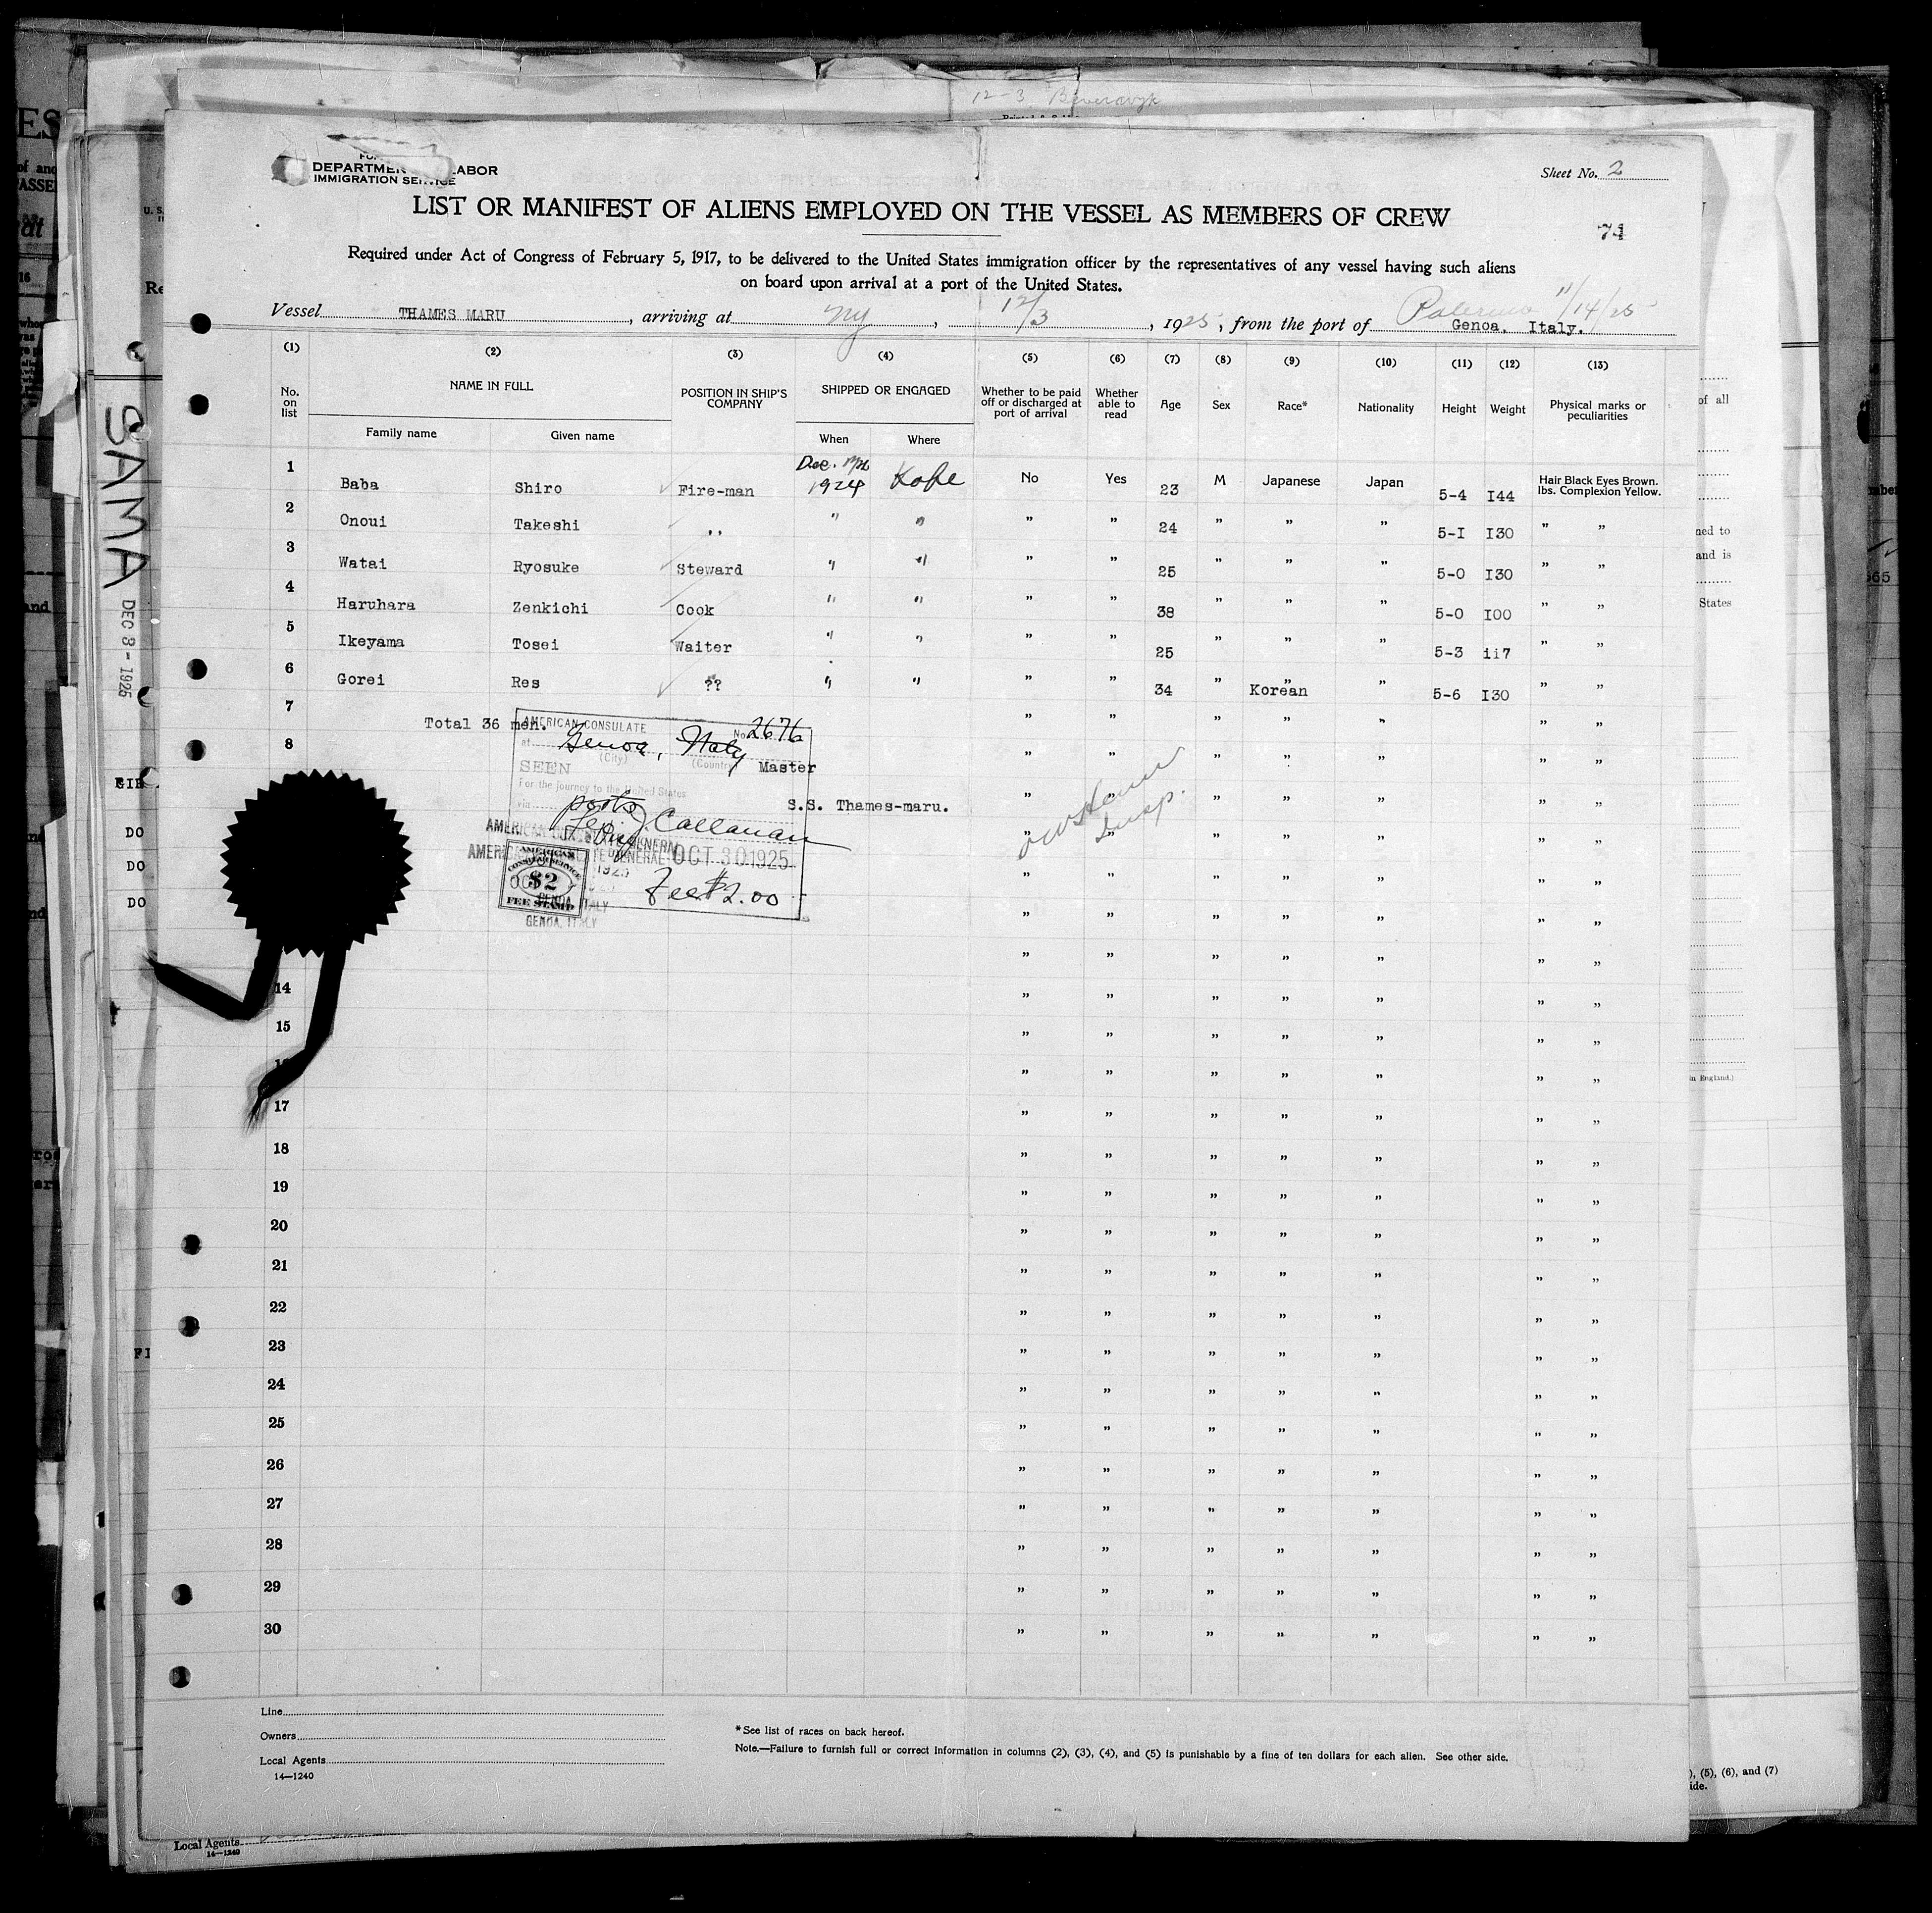 12-3
DEPARTMEN LABOR
IMMIGRATION SERVICE
Sheet No. 2
LIST OR MANIFEST OF ALIENS EMPLOYED ON THE VESSEL AS MEMBERS OF CREW
74
Required under Act of Congress of February 5, 1917, to be delivered to the United States immigration officer by the representatives of any vessel having such aliens
on board upon arrival at a port of the United States.
Palermo 11/14/25
Vessel THAMES MARU, arriving at NY, 12/3, 1925, from the port of Genoa, Italy.
(1) (2) (3) (4) (5) (6) (7) (8) (9) (10) (11) (12) (13)
No. on list NAME IN FULL Family name Given name POSITION IN SHIP'S COMPANY SHIPPED OR ENGAGED When Where Whether to be paid off or discharged at port of arrival Whether able to read Age Sex Race* Nationality Height Weight Physical marks or peculiarities
1 Baba Shiro Fire-man Dec. 1924 Kobe No Yes 23 M Japanese Japan 5-4 I44 Hair Black Eyes Brown. lbs. Complexion Yellow.
2 Onoui Takeshi ,, " " " " 24 " " " 5-I I30 " "
3 Watai Ryosuke Steward " " " " 25 " " " 5-0 I30 " "
4 Haruhara Zenkichi Cook " " " " 38 " " " 5-0 I00 " "
5 Ikeyama Tosei Waiter " " " " 25 " " " 5-3 1i7 " "
6 Gorei Res ?? " " " " 34 " Korean " 5-6 I30 " "
7 " " " " " " "
Total 36 men.
8 " " " " " " "
AMERICAN CONSULATE No. 2676
at Genoa, Italy
(City) (Country)
SEEN
Master
For the journey to the United States
via ports
S.S. Thames-maru.
Callanan
OCT 30 1925
AMERICAN CONSULAR SERVICE
$2
FEE STAMP
Fee $2.00
GENOA, ITALY
14 " " " " " " "
15 " " " " " " "
16 " " " " " " "
17 " " " " " " "
18 " " " " " " "
19 " " " " " " "
20 " " " " " " "
21 " " " " " " "
22 " " " " " " "
23 " " " " " " "
24 " " " " " " "
25 " " " " " " "
26 " " " " " " "
27 " " " " " " "
28 " " " " " " "
29 " " " " " " "
30 " " " " " " "
Line
Owners
Local Agents
14—1240
*See list of races on back hereof.
Note.—Failure to furnish full or correct information in columns (2), (3), (4), and (5) is punishable by a fine of ten dollars for each alien. See other side.
), (5), (6), and (7)
ide.
Local Agents
14—1240
BAMA
DEC 3 - 1925
DO
DO
DO
of all
ned to
and is
States
in England.)